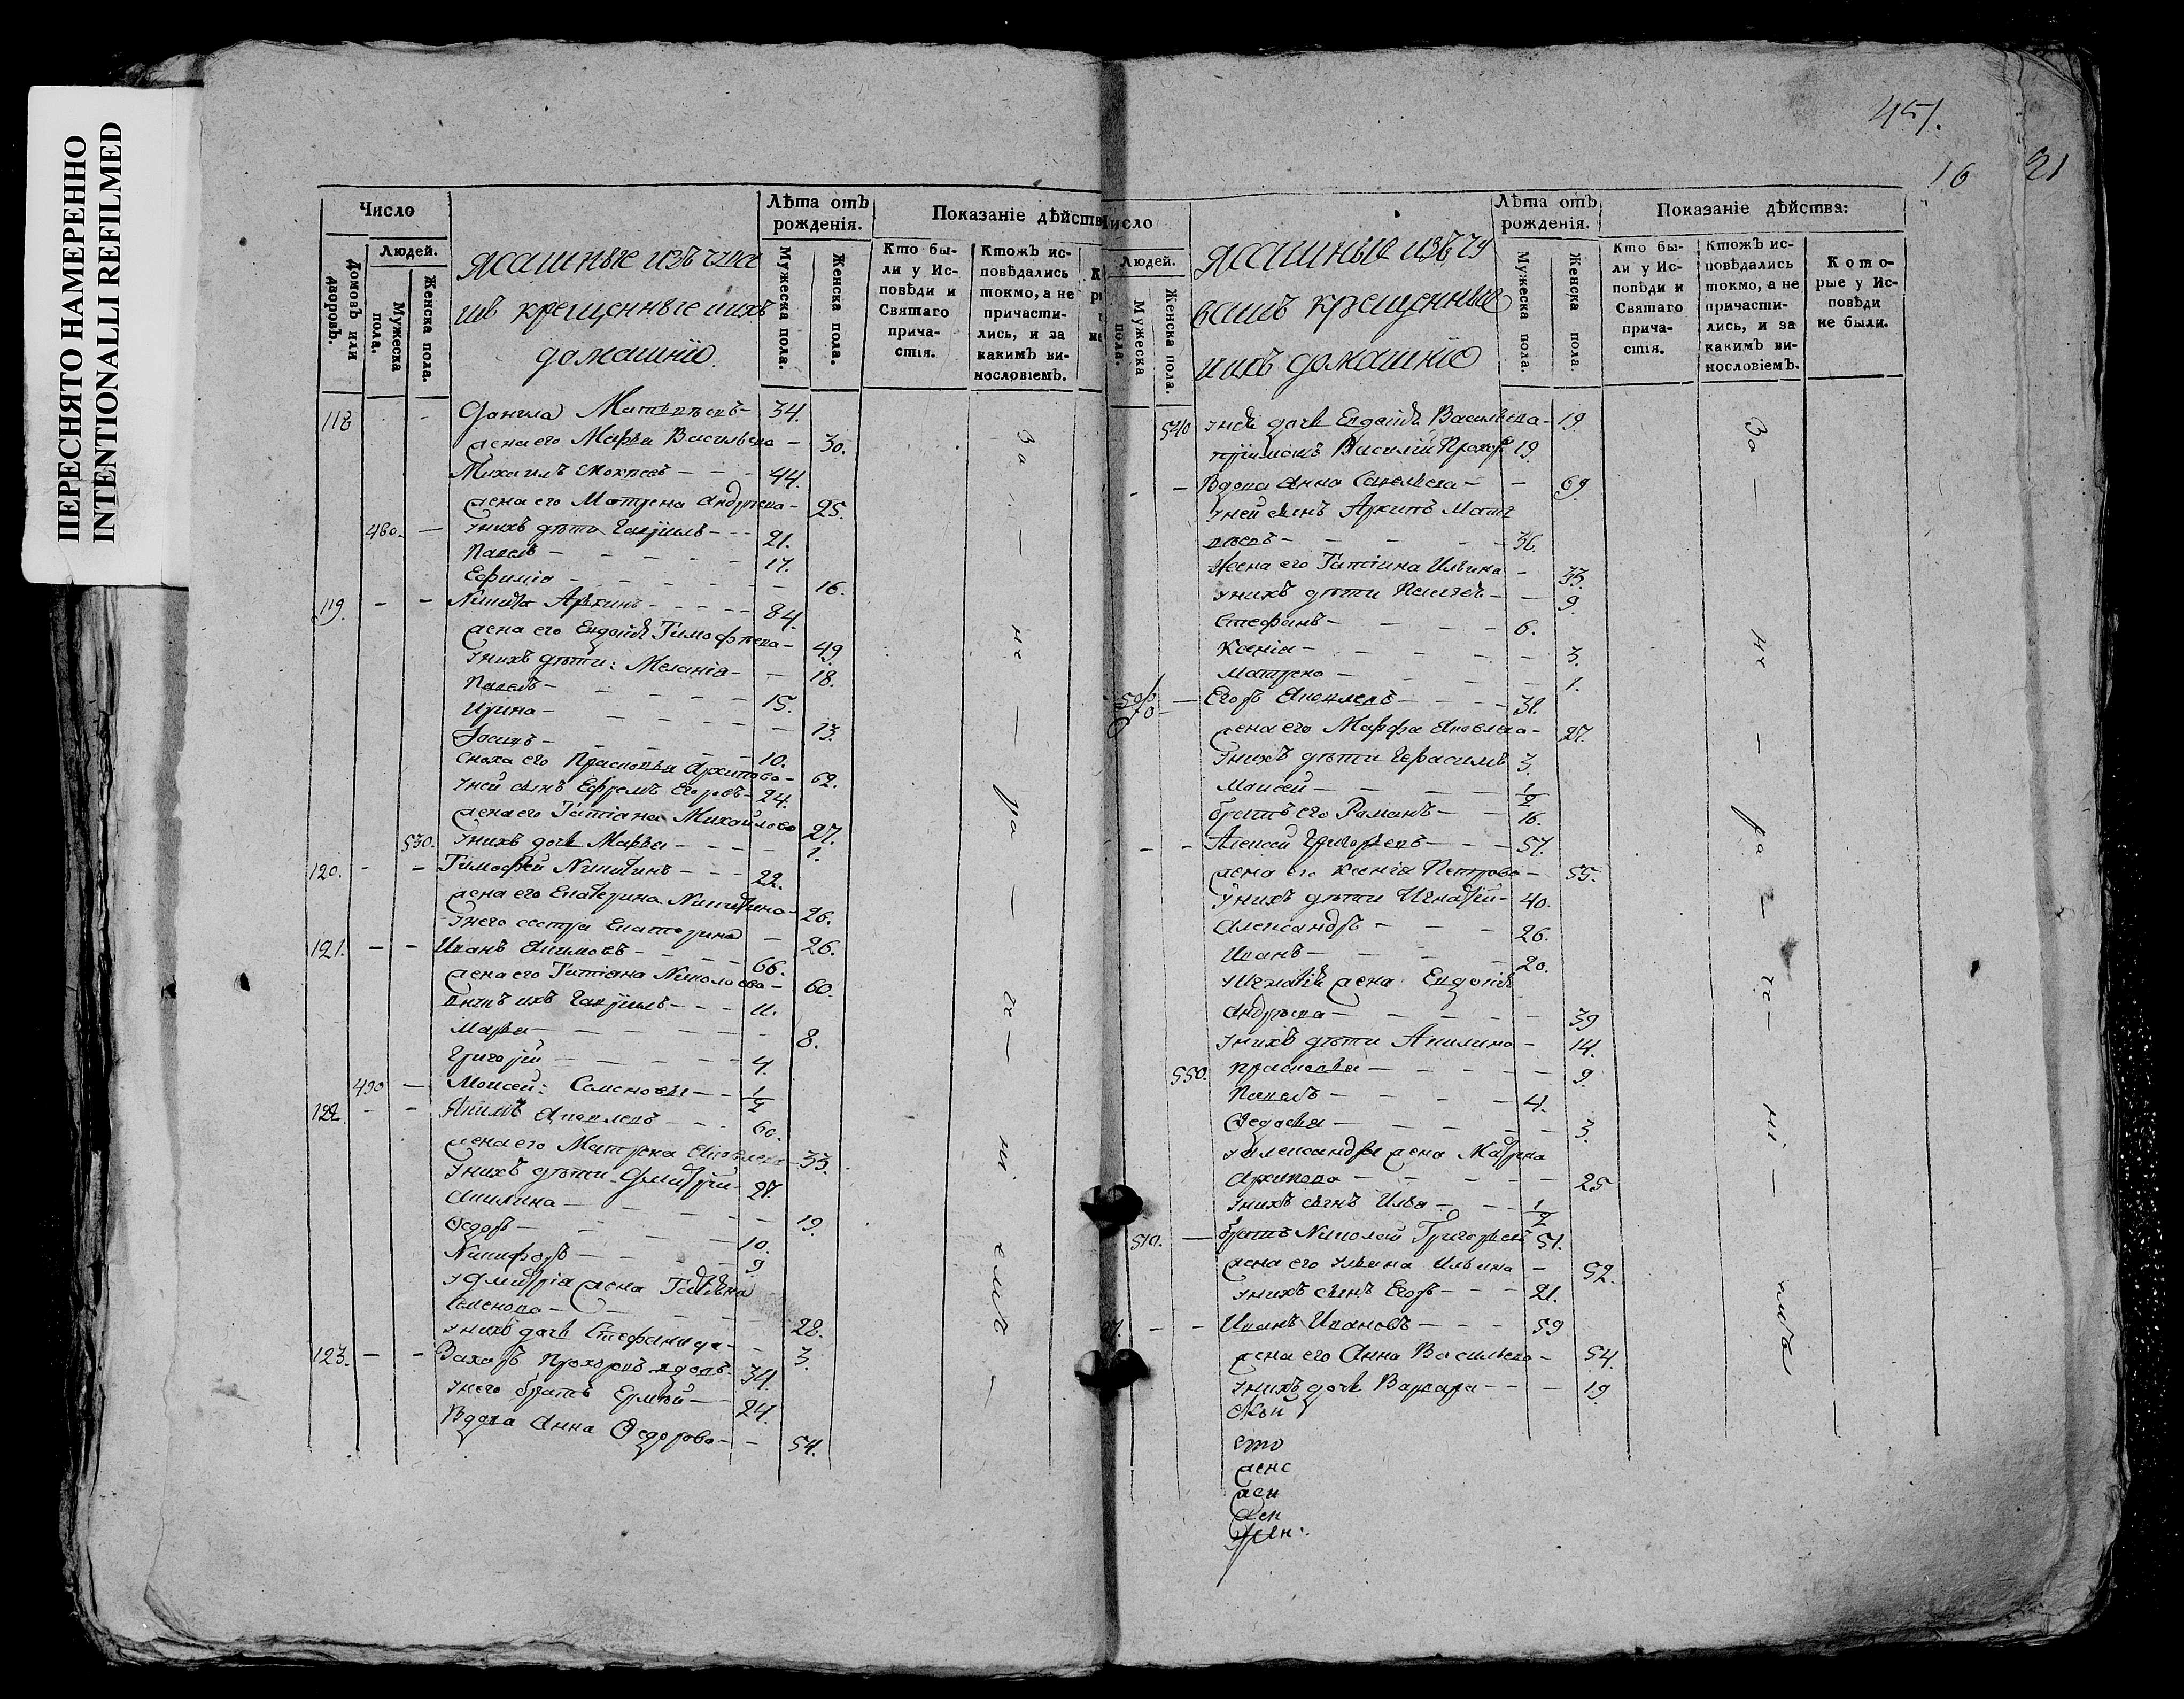 ПЕРЕСНЯТО НАМЕРЕННО
INTENTIONALLI REFILMED
Число
Людей.
Домовъ или дворовъ.
Мужеска пола.
Женска пола.
Ясашные изъ чува
шъ крещенные и ихъ
домашніе
Лѣта отъ рожденія.
Мужеска пола.
Женска пола.
Показаніе дѣйств
Кто бы-
ли у Ис-
повѣди и
Святаго
прича-
стія.
Ктожъ ис-
повѣдались
токмо, а не
причасти-
лись, и за
какимъ ви-
нословіемъ.
118 Данила Матвѣевъ 34.
жена его Марья Васильева 30.
Михаилъ Мокѣевъ 44.
жена его Матрена Андреева 25.
480. у нихъ дѣти Гаврилъ 21.
Павелъ 17.
Ефимія 16.
119. Никита 84.
жена его Евдокія Тимофѣева 49.
у нихъ дѣти: Меланія 18.
Павелъ 15.
Ирина 13.
Іосипъ 10.
сноха его Прасковья Архипова 62.
у ней сынъ Ефремъ Егоровъ 24.
жена его Татіана Михайлова 27.
530. у нихъ дочь Марья 1.
120. Тимофей Никитинъ 22.
жена его Екатерина Никитина 26.
у него сестра Екатерина 26.
121. Иванъ Акимовъ 66.
жена его Татіана Николаева 60.
внукъ ихъ Гаврилъ 11.
Марья 8.
Григорій 4.
490 Моисей Семеновъ 1/2
122. Якимъ Яковлевъ 60.
жена его Матрена Яковлева 33.
у нихъ дѣти Дмитрій 27.
Акилина 19.
Ѳедоръ 10.
Никифоръ 9.
у Дмитрія жена Татьяна
Семенова 28.
у нихъ дочь Стефанида 3.
123. Захаръ Прохоровъ вдовъ 34.
у него братъ Ермей 24.
Вдова Анна Ѳедорова 54.
За — не — ра — че — ні — емъ —
451.
16 21
Число
Людей.
Мужеска пола.
Женска пола.
Ясашные изъ чу
вашъ крещенные
и ихъ домашніе
Лѣта отъ рожденія.
Мужеска пола.
Женска пола.
Показаніе дѣйства:
Кто бы-
ли у Ис-
повѣди и
Святаго
прича-
стія.
Ктожъ ис-
повѣдались
токмо, а не
причасти-
лись, и за
какимъ ви-
нословіемъ.
Кото-
рые у Ис-
повѣди
не были.
540 у ней дочь Евдокія Васильева 19.
пріимышъ Василій Прохор 19.
Вдова Анна Савельева 69.
у ней сынъ Архипъ Матв
вѣевъ 36.
Жена его Татіана Ильина 33.
у нихъ дѣти 9.
Стефанъ 6.
Ксенія 3.
Матрена 1.
Егоръ Яковлевъ 31.
жена его Марфа Яковлева 27.
у нихъ дѣти Герасимъ 3.
Моисей 1/2
братъ его Романъ 16.
Алексей Григорьевъ 57.
жена его Ксенія Петрова 55.
у нихъ дѣти Игнатій 40.
Александръ 26.
Иванъ 20.
у Игнатія жена Евдокія
Андреева 39
у нихъ дѣти Акилина 14.
550. Прасковья 9.
Павелъ 4.
Ѳедосья 3.
у Александра жена Матрена
Архипова 25
у нихъ сынъ Илья 1/2
510. братъ Николай Григорьевъ 51.
жена его Ульяна Ильина 52.
у нихъ сынъ Егоръ 21.
Иванъ Ивановъ 59
жена его Анна Васильева 54.
у нихъ дочь Варвара 19
За — не — ра — че — ні — емъ
жен